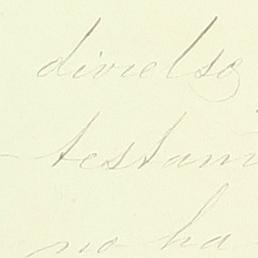 divielso
- testam
no ha